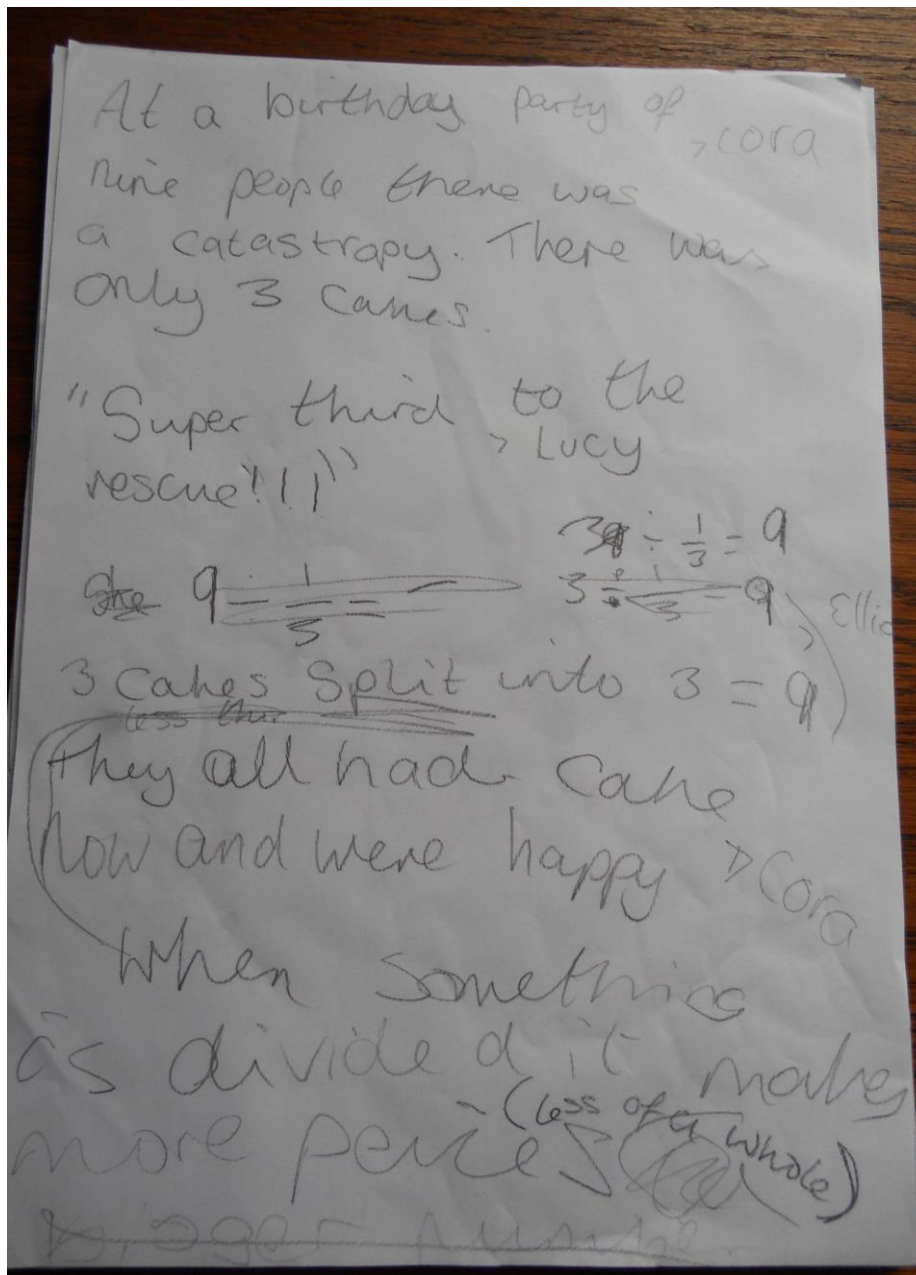 At a birthday party of
> cora
nine people there was
a catastrapy. There was
only 3 cakes.
"Super third to the
> Lucy
rescue!!!"
3 ÷ 1/3 = 9
She 9 - 1/3 =
3 ÷ 1/3 = 9
3 cakes split into 3 = 9
less than
they all had cake
now and were happy > Cora
When something
is divided it makes
more peices - (less of a whole)
bigger number.